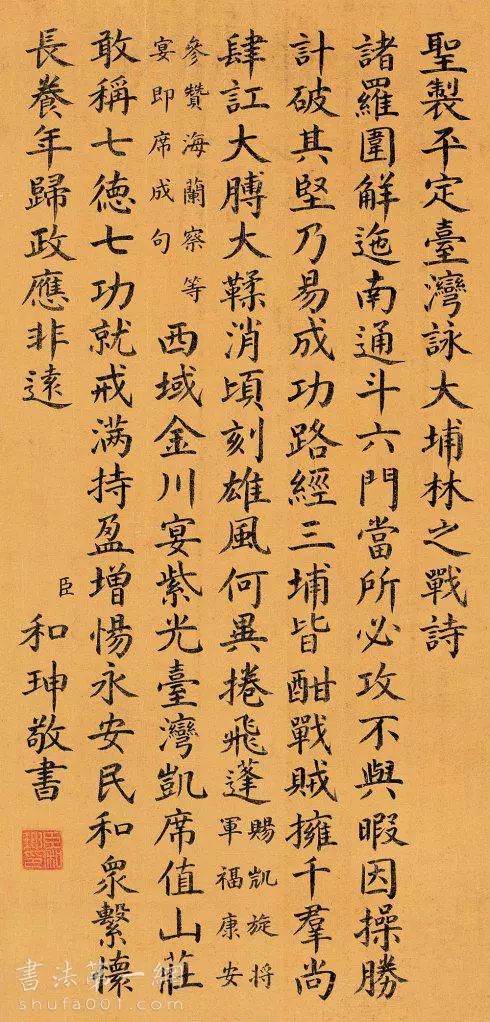 聖製平定臺灣詠大埔林之戰詩
諸羅圍解迤南通斗六門當所必攻不與暇因操勝
計破其堅乃易成功路經三埔皆酣戰賊擁千羣尚
肆訌大膊大鞣消頃刻雄風何異捲飛蓬
賜凱旋将
軍福康安
參贊海蘭察等
宴即席成句
西域金川宴紫光臺灣凱席值山莊
敢稱七德七功就戒满持盈增惕永安民和衆繫懷
長養年歸政應非遠
臣和珅敬書
書法第一網
shufa001.com